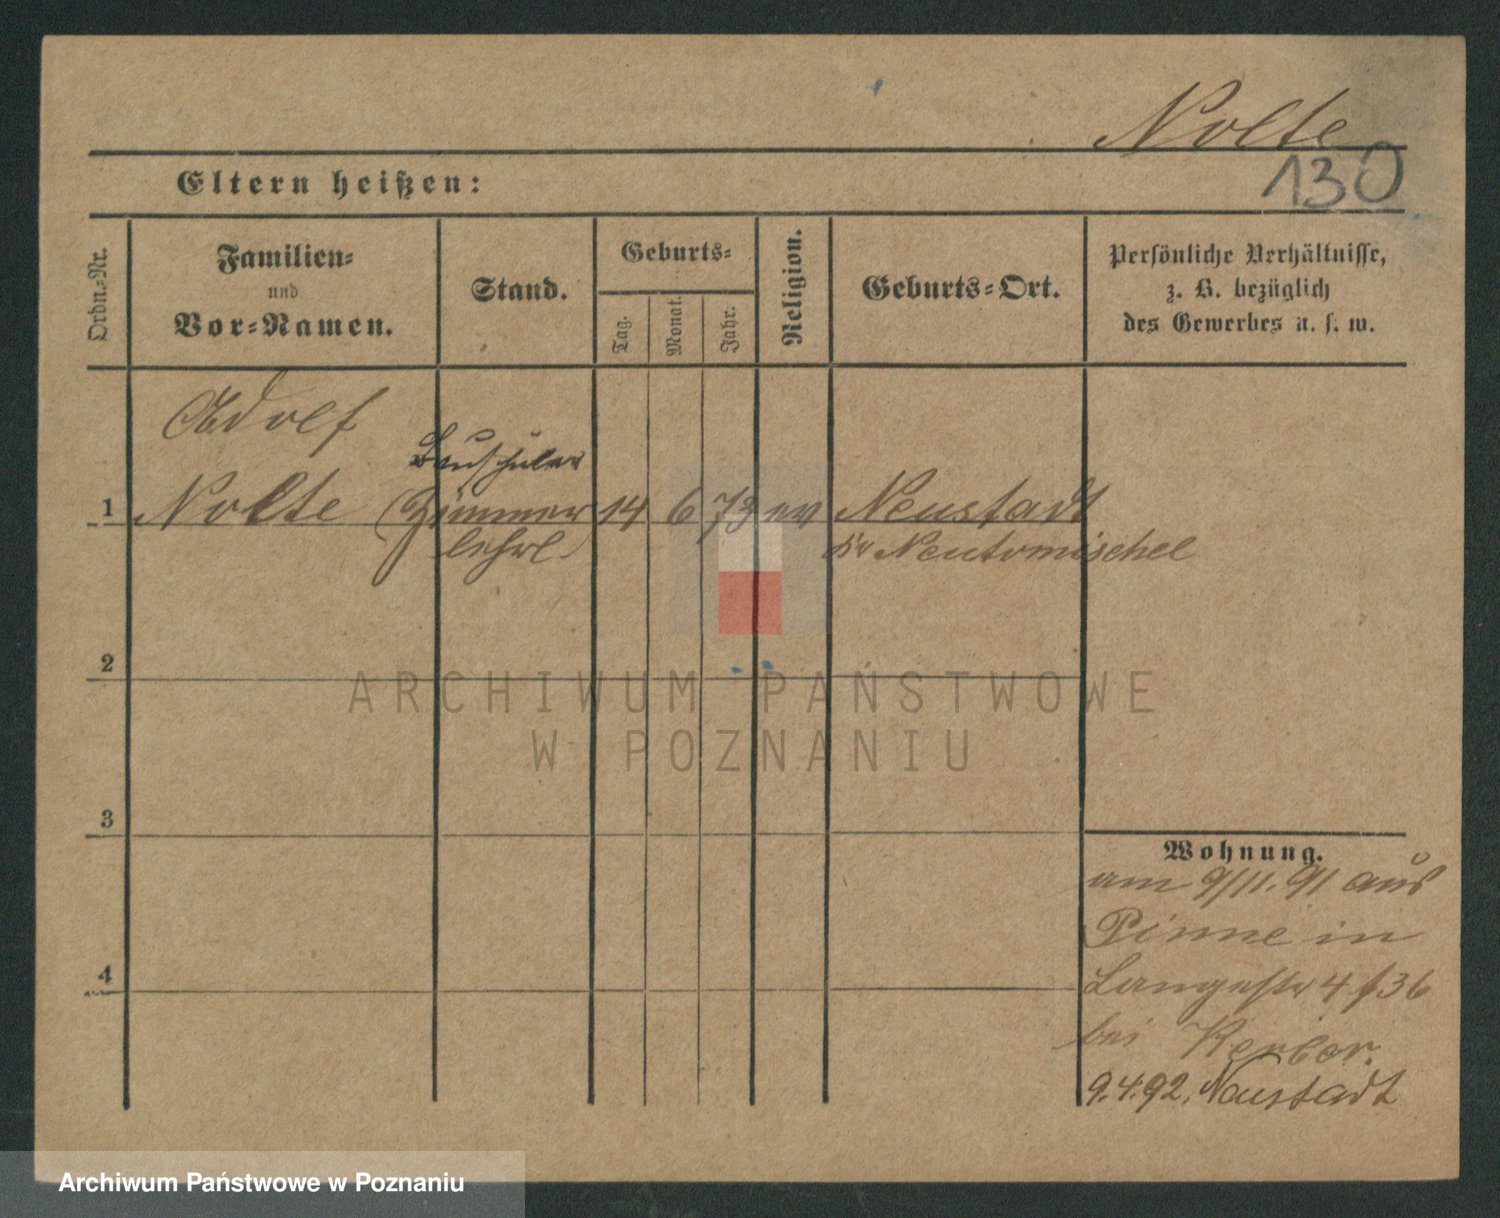 Nolte
130
Eltern heißen:
Ordn.-Nr.
Familien-
und
Vor-Namen.
Stand.
Geburts-
Tag.
Monat.
Jahr.
Religion.
Geburts-Ort.
Persönliche Verhältnisse,
z. B. bezüglich
des Gewerbes u. s. w.
Adolf
Bauschüler
1 Nolte (Zimmer 14 6 73 ev Neustadt
lehrl) Kr Neutomischel
2
ARCHIWUM PAŃSTWOWE
W POZNANIU
3
Wohnung.
am 9/11. 91 aus
Pinne in
4
Langestr 4 36
bei
9.4.92. Neustadt
Archiwum Państwowe w Poznaniu